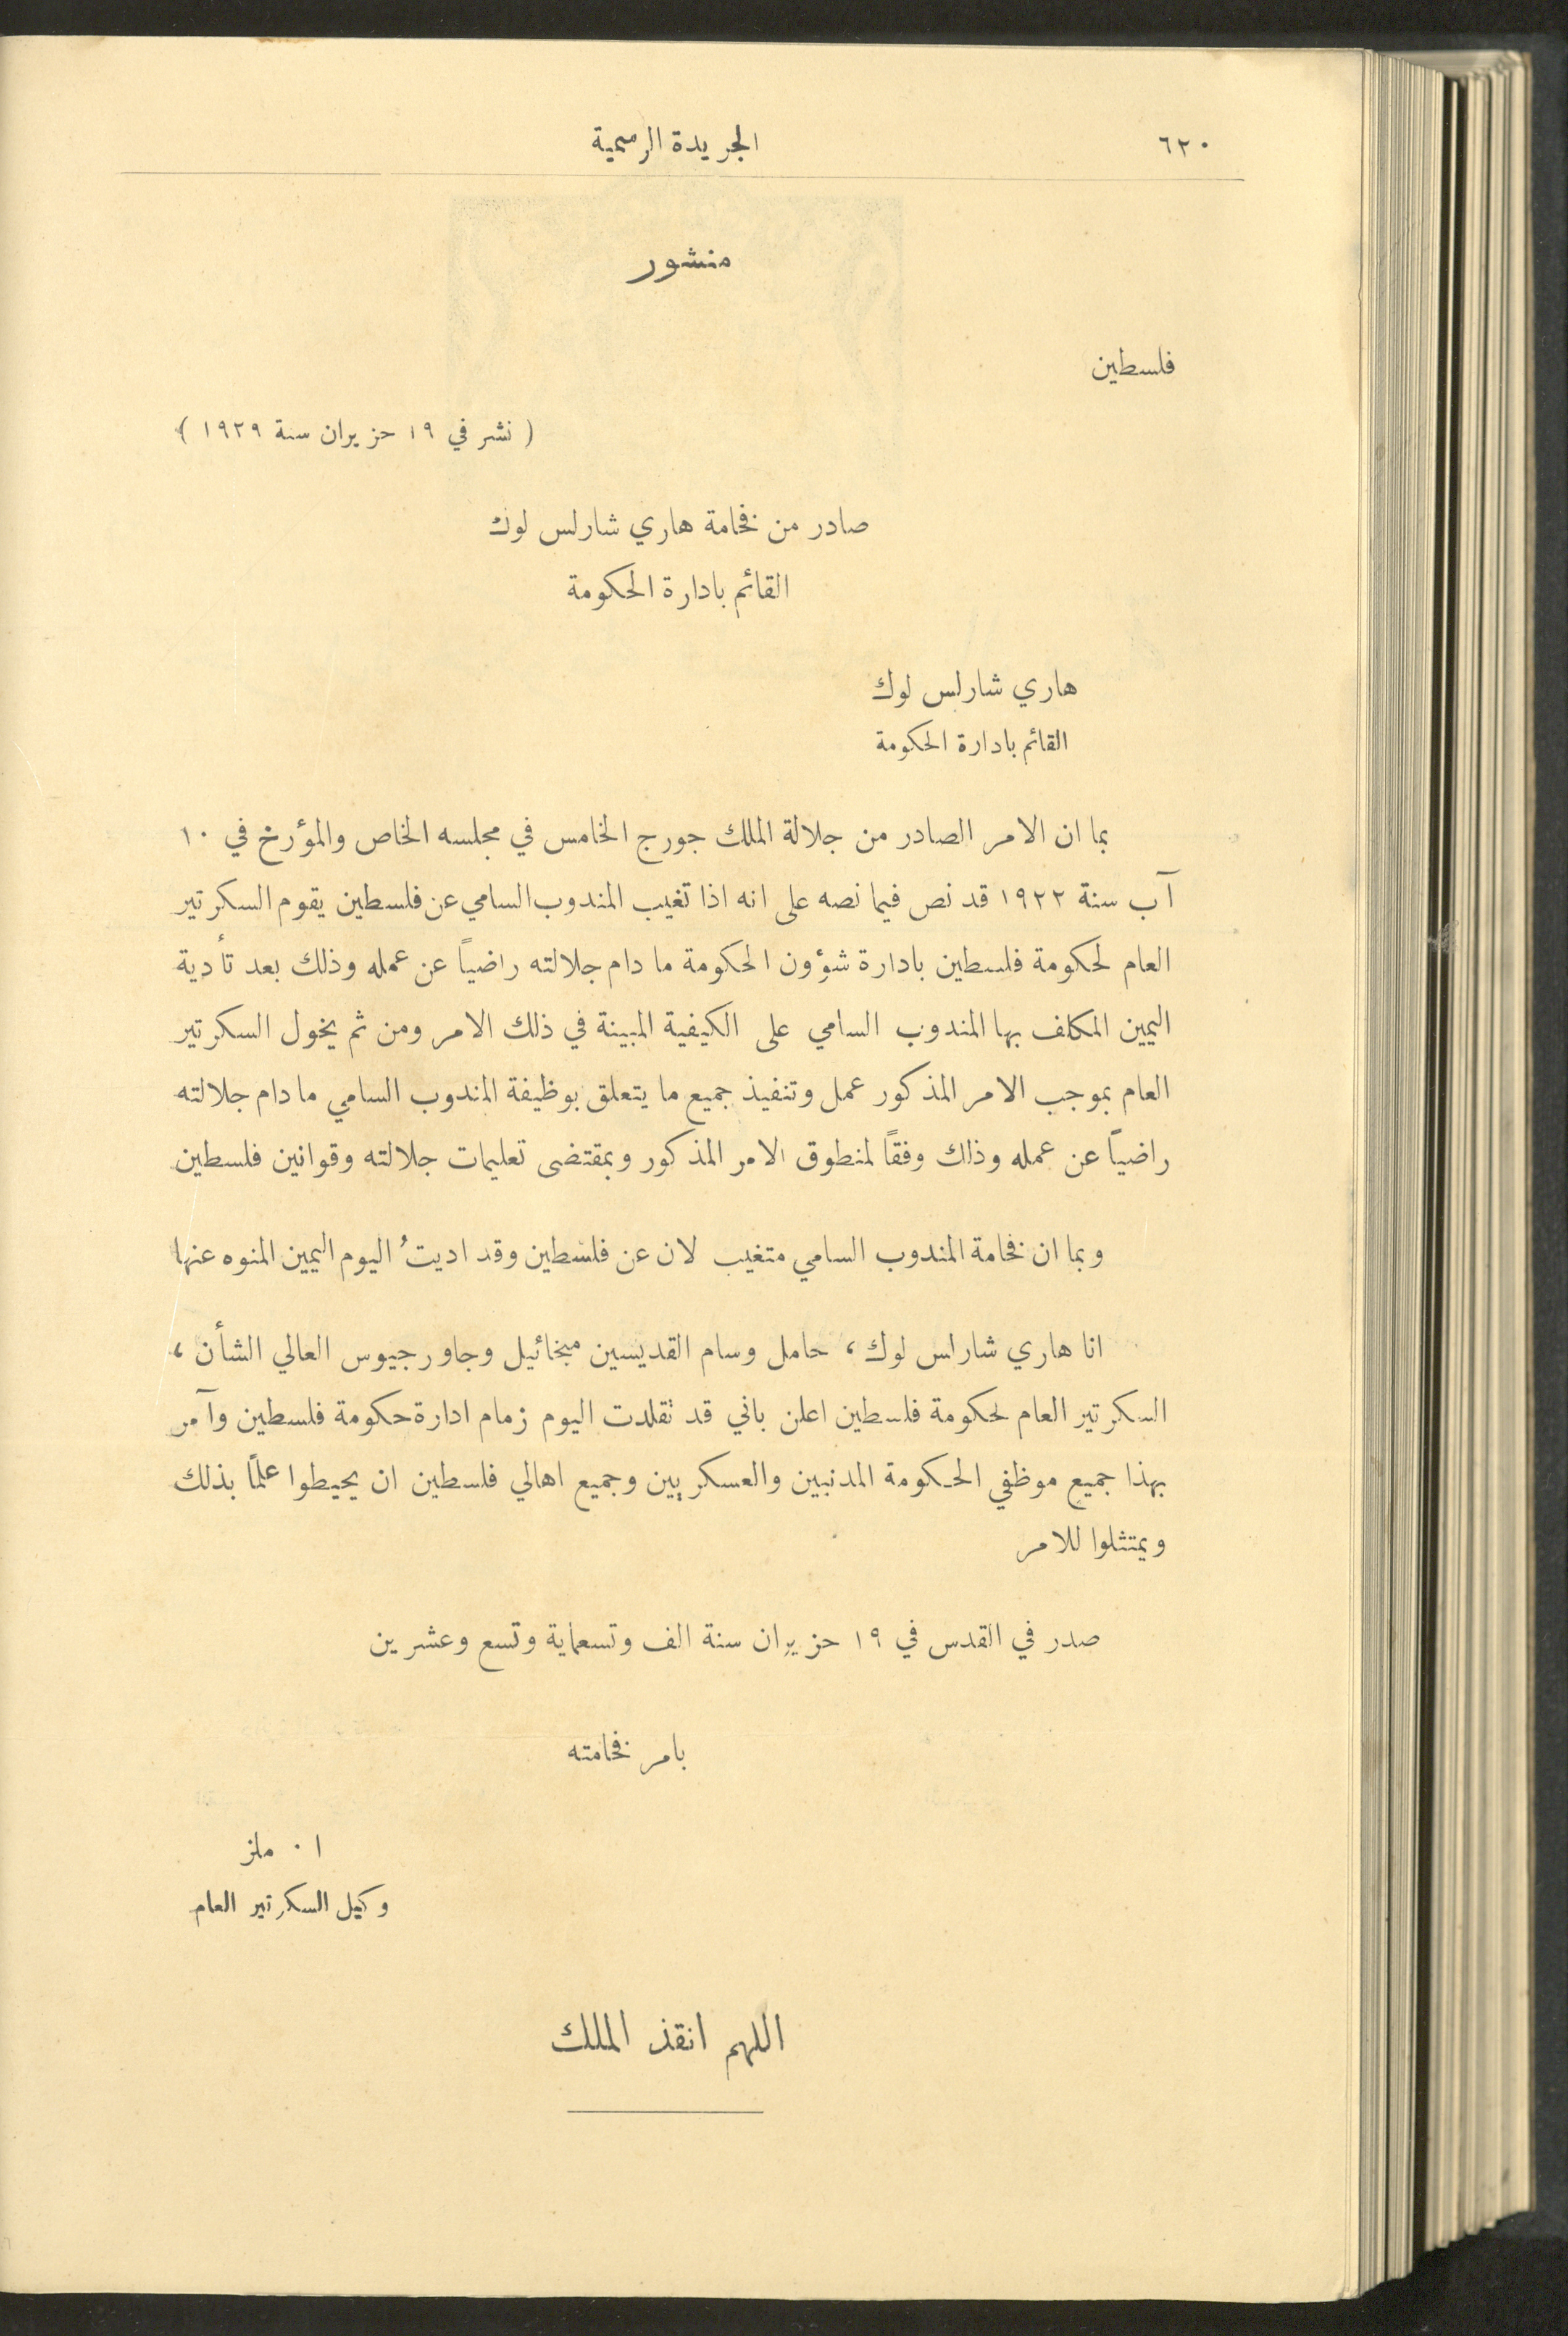 ٦٢٠
الجريدة الرسمية
منشور
فلسطين
( نشر في ١٩ حزيران سنة ١٩٢٩ )
صادر من فخامة هاري شارلس لوك
القائم بادارة الحكومة
هاري شارلس لوك
القائم بادارة الحكومة
بما ان الامر الصادر من جلالة الملك جورج الخامس في مجلسه الخاص والمؤرخ في ١٠
آب سنة ١٩٢٢ قد نص فيما نصه على انه اذا تغيب المندوب السامي عن فلسطين يقوم السكرتير
العام لحكومة فلسطين بادارة شؤون الحكومة ما دام جلالته راضياً عن عمله وذلك بعد تأدية
اليمين المكلف بها المندوب السامي على الكيفية المبينة في ذلك الامر ومن ثم يخول السكرتير
العام بموجب الامر المذكور عمل وتنفيذ جميع ما يتعلق بوظيفة المندوب السامي ما دام جلالته
راضياً عن عمله وذلك وفقاً لمنطوق الامر المذكور وبمقتضى تعليمات جلالته وقوانين فلسطين
وبما ان فخامة المندوب السامي متغيب لان عن فلسطين وقد اديتُ اليوم اليمين المنوه عنها
انا هاري شارلس لوك ، حامل وسام القديسين ميخائيل وجاورجيوس العالي الشأن ،
السكرتير العام لحكومة فلسطين اعلن باني قد تقلدت اليوم زمام ادارة حكومة فلسطين وآمر
بهذا جميع موظفي الحكومة المدنيين والعسكريين وجميع اهالي فلسطين ان يحيطوا علماً بذلك
ويمتثلوا للامر
صدر في القدس في ١٩ حزيران سنة الف وتسعماية وتسع وعشرين
بامر فخامته
ا ٠ ملز
وكيل السكرتير العام
اللهم انقذ الملك